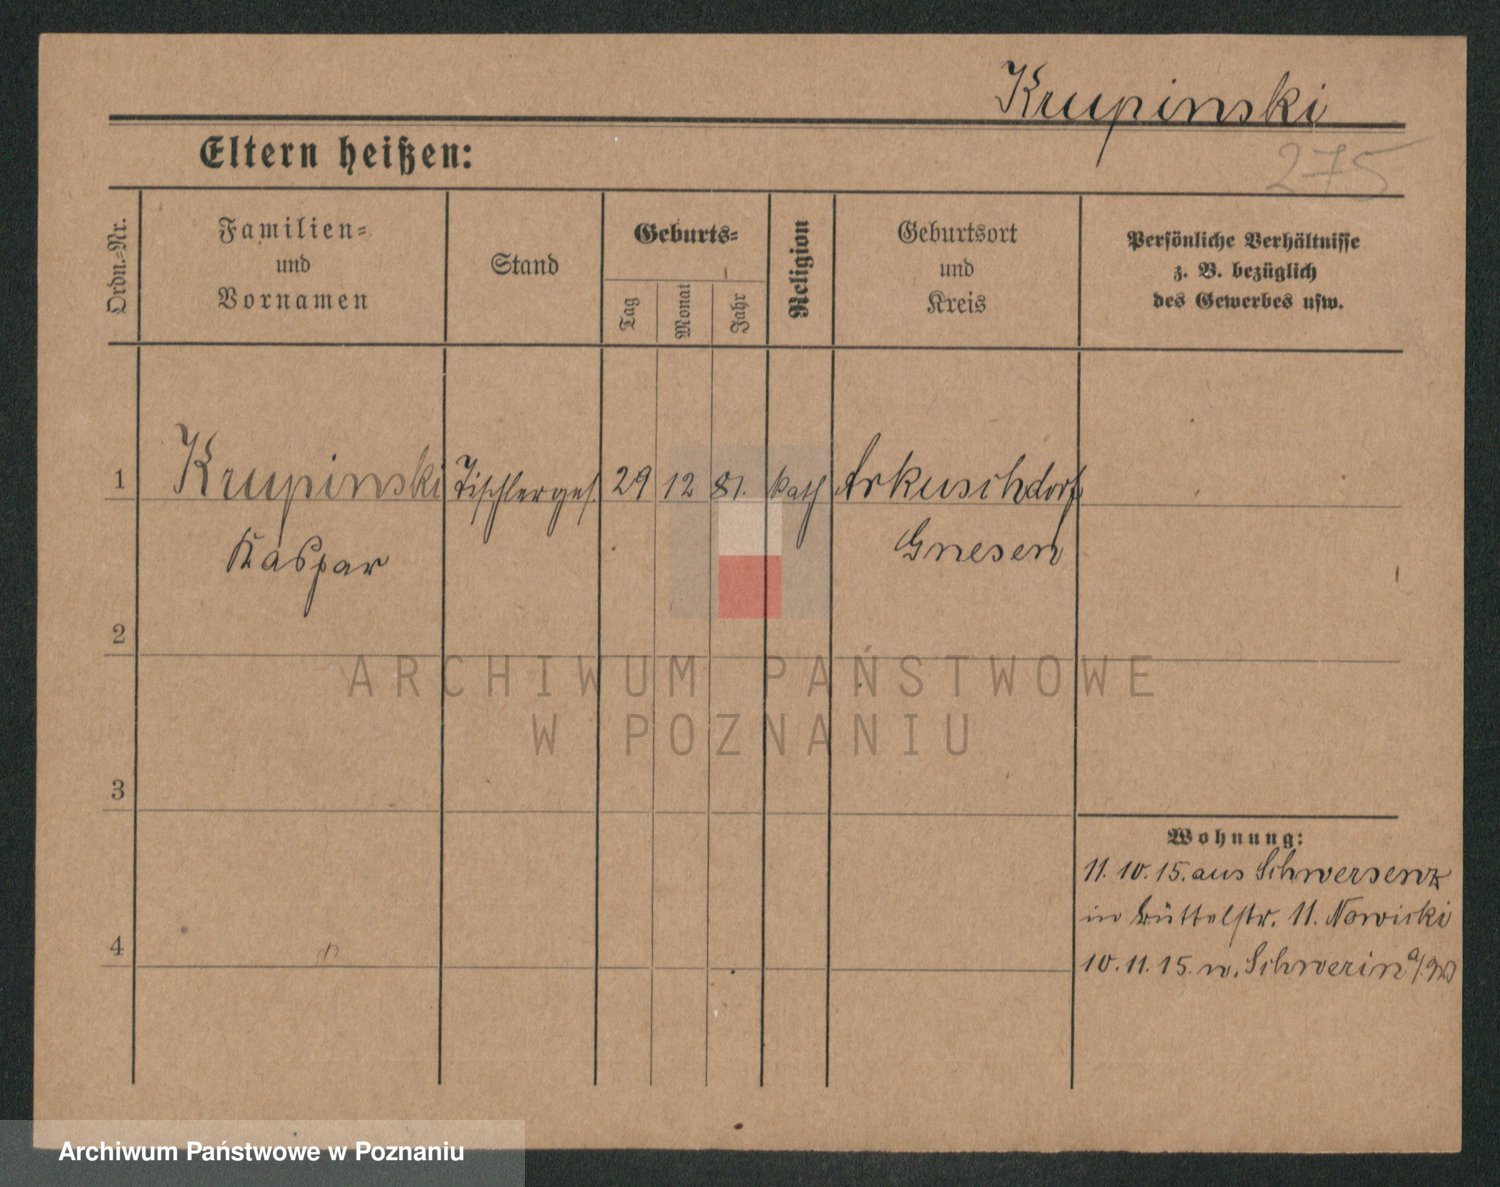 Krupinski
275
Eltern heißen:
Ordn.-Nr.
Familien-
und
Vornamen
Stand
Geburts-
Tag
Monat
Jahr
Religion
Geburtsort
und
Kreis
Persönliche Verhältnisse
z. B. bezüglich
des Gewerbes usw.
1 Krupinski Tischlerges. 29 12 81. kath Arkuschdorf
Kaspar Gnesen
2
3
4
Wohnung:
11. 10. 15. aus Schwersenz
in Büttelstr. 11. Nowicki
10. 11. 15. n. Schwerin a/W
ARCHIWUM PAŃSTWOWE
W POZNANIU
Archiwum Państwowe w Poznaniu